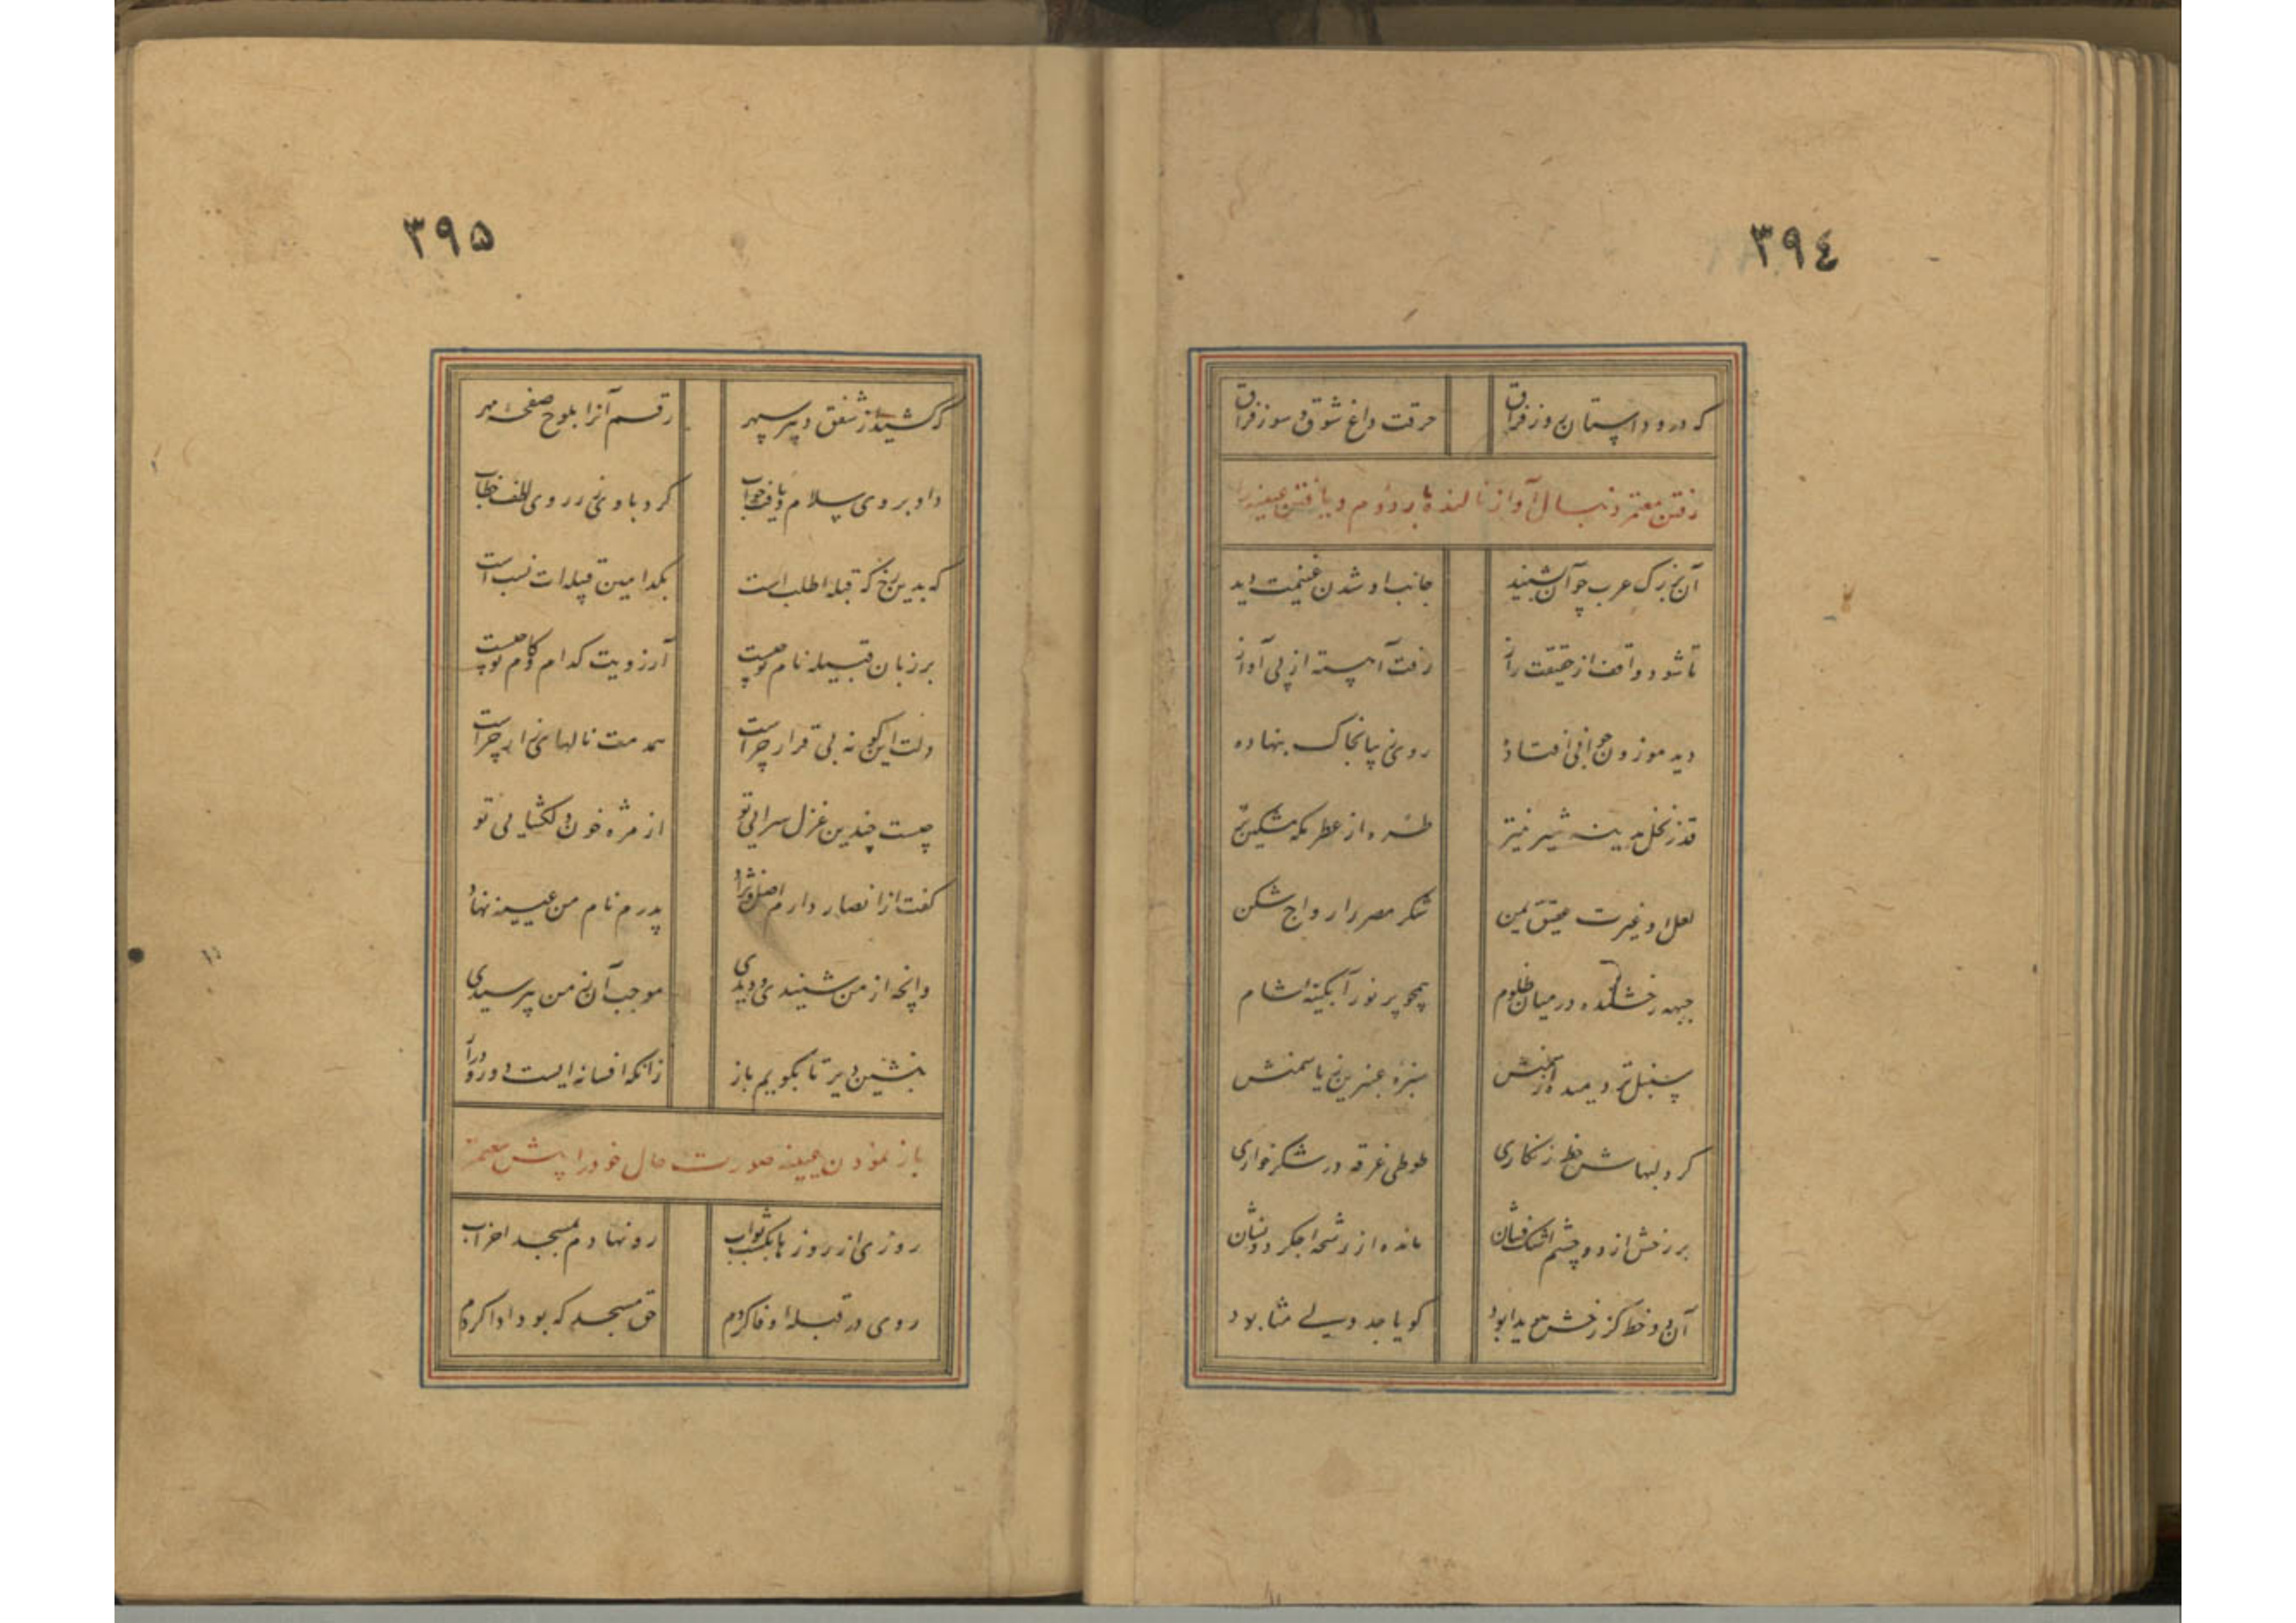 ٣٩٤
که درود استان روز فراق حرقت داغ شوق و سوز فراق
رفتن معتمر دنبال آواز نالنده بار دوم و یافتن عیینه را
آن بزرگ عرب چو آن شنید جانب او شدن غنیمت دید
تا شود واقف از حقیقت راز رفت آهسته از پی آواز
دید موزون جوانی افتاده روی زیبا بخاک بنهاده
قد ز نخل مدینه شیرین‌تر طره از عطر مکه مشکین‌تر
لعل او غیرت عقیق یمن شکر مصر را رواج شکن
جبهه رخشنده در میان ظلام همچو پر نور آبگینه شام
سنبل تر دمیده از سمنش سبزه عنبرین ز یاسمنش
کرد لبهاش خط زنگاری طوطی غرقه در شکرخواری
بر رخش از دو چشم اشک‌فشان مانده از رشحه جگر دو نشان
آن دو خط کز رخش هویدا بود گویا جدولی مثنا بود
٣٩۵
که کشید از شفق دبیر سپهر رقم آنرا بلوح صفحه مهر
داد بر وی سلام و یافت جواب کرد با وی ز روی لطف خطاب
که بدین رخ که قبله طلب است بکدامین قبیله‌ات نسب است
بر زبان قبیله نام تو چیست آرزویت کدام و کام تو چیست
دلت این گونه بی قرار چراست همدمت نالهای زار چراست
چیست چندین غزل سرایی تو از مژه خون دل گشایی تو
گفت از انصار دارم اصل و نژاد پدرم نام من عیینه نهاد
وانچه از من شنیدی و دیدی موجب آن ز من بپرسیدی
بنشین دیر تا بگویم باز زانکه افسانه‌ایست دور و دراز
باز نمودن عیینه صورت حال خود را پیش معتمر
روزی از روزها بکسب ثواب رو نهادم بمسجد احزاب
روی در قبله وفا کردم حق مسجد که بود ادا کردم